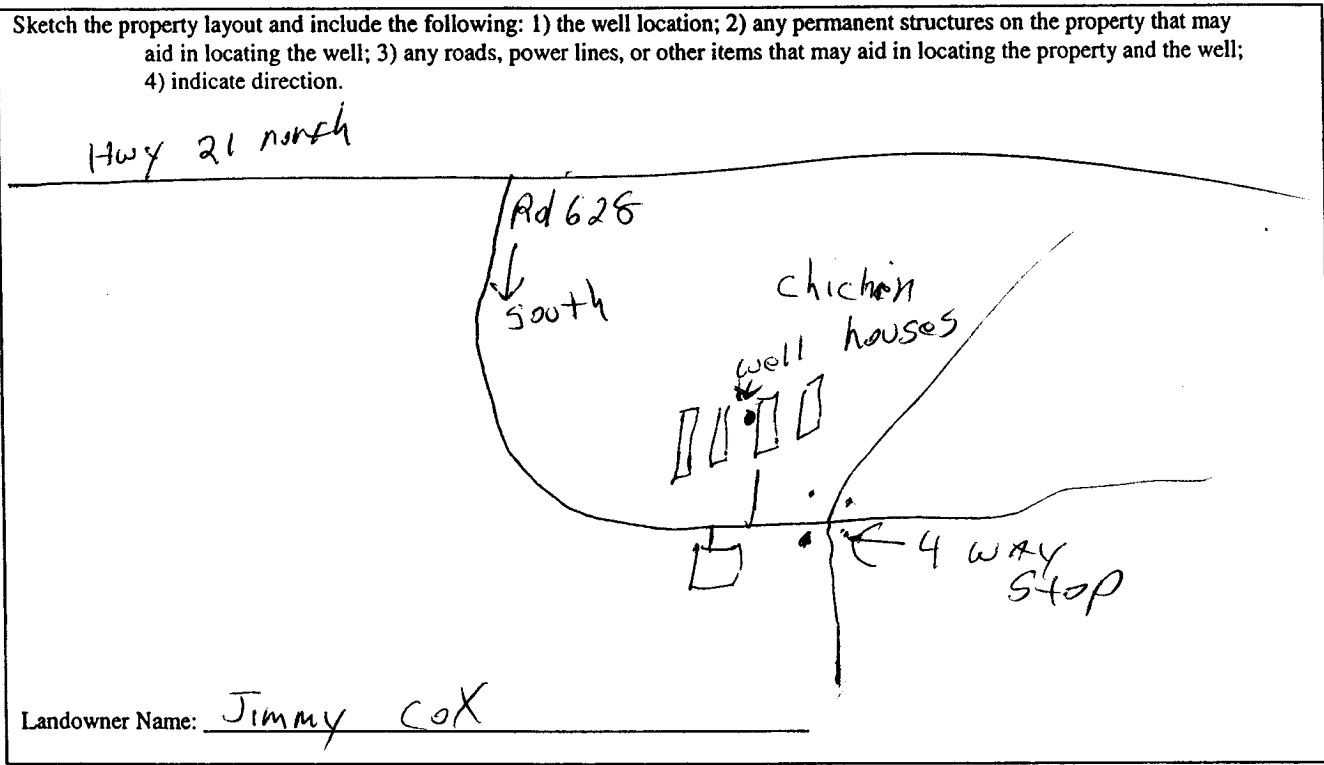 Sketch the property layout and include the following: 1) the well location; 2) any permanent structures on the property that may
aid in locating the well; 3) any roads, power lines, or other items that may aid in locating the property and the well;
4) indicate direction.
Hwy 21 north
Rd 628
South
chicken
houses
well
4 way
Stop
Landowner Name: Jimmy Cox